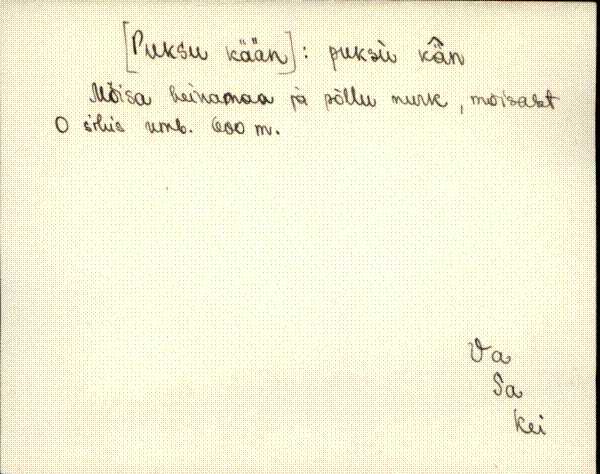 [Puksu kään]: puksù kä̂n
Mõisa heinamaa ja põllu nurk, mõisast
O sihis umb. 600 m.
Va
Sa
Kei